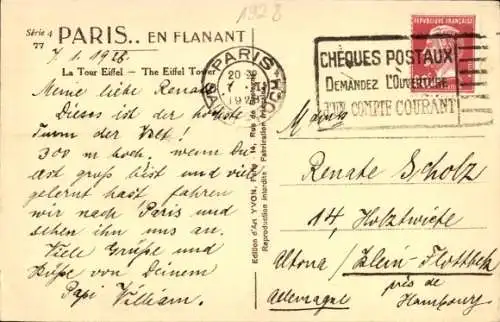 1928
Série 4
77
PARIS.. EN FLANANT
7.1.1928.
La Tour Eiffel — The Eiffel Tower
Meine liebe Renate
Dieses ist der höchste
Turm der Welt!
300 m hoch, wenn Du
erst groß bist und viel
gelernt hast fahren
wir nach Paris und
sehen ihn uns an.
Viele Grüße und
Küsse von Deinem
Papi William.
Edition d'Art YVON, Paris, 14, Rue de
Reproduction interdite - Fabrication
PARIS
20
7 - 1
1928
RÉPUBLIQUE FRANÇAISE
CHÈQUES POSTAUX
DEMANDEZ L'OUVERTURE
D'UN COMPTE COURANT
Renate Scholz
14, Holztwiete
Altona / Klein-Flottbek
près de
Allemagne Hambourg